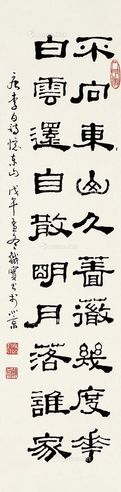 不向東山久薔薇幾度花
白雲還自散明月落誰家
唐李白詩憶東山戊午